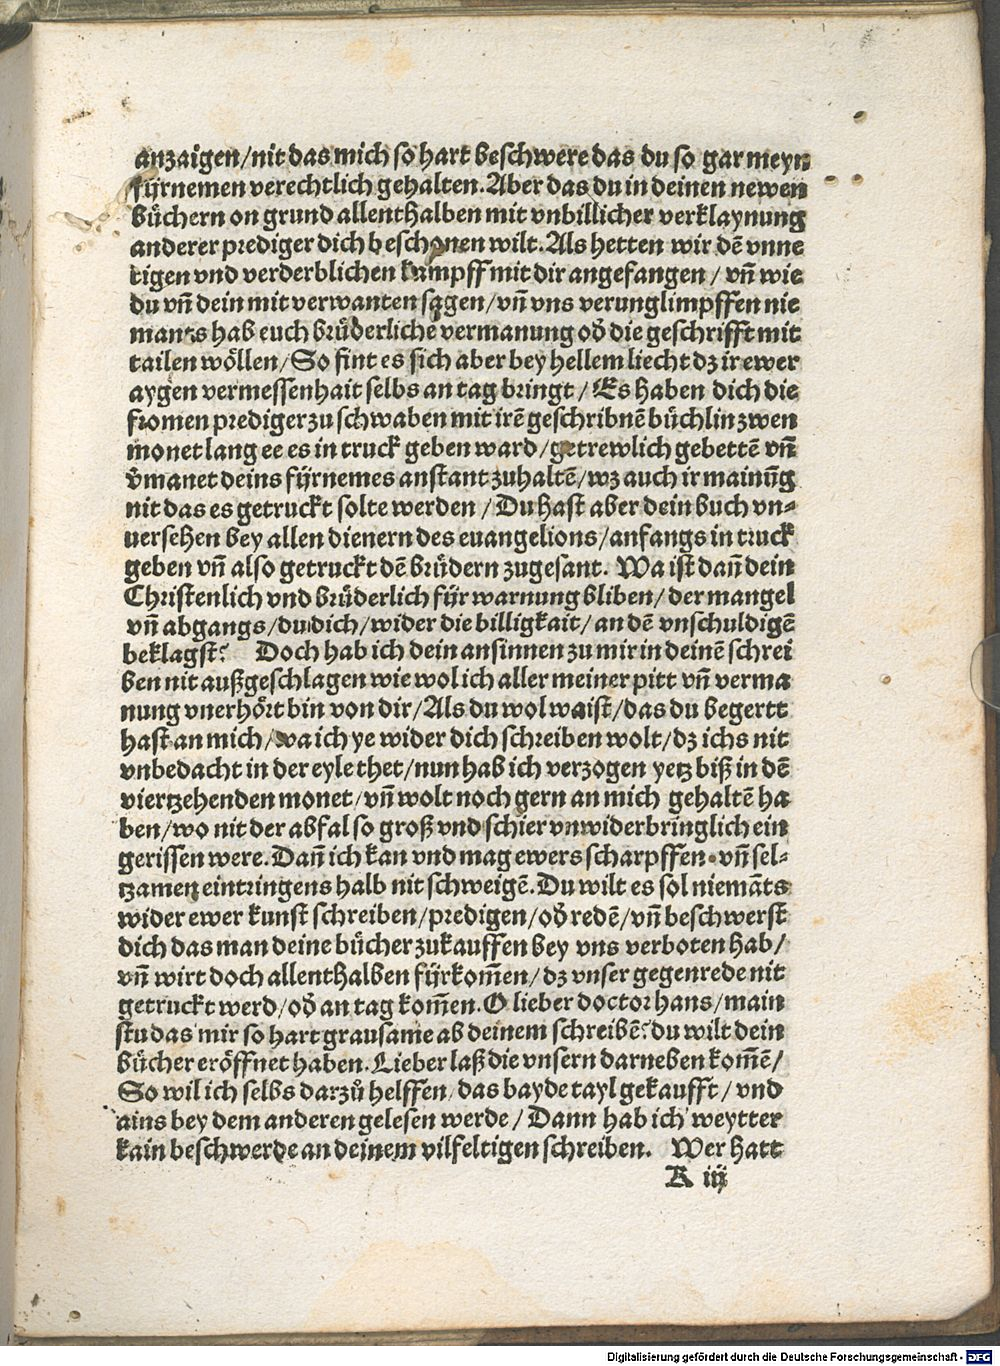 anzaigen/nit das mich so hart beschwere das du so gar meyn
fürnemen verechtlich gehalten. Aber das du in deinen newen
bůchern on grund allenthalben mit vnbillicher verklaynung
anderer prediger dich beschonen wilt. Als hetten wir dē vnne
tigen vnd verderblichen kampff mit dir angefangen / vñ wie
du vñ dein mit verwanten sagen/vñ vns verunglimpffen nie
mants hab euch brüderliche vermanung od̄ die geschrifft mit
tailen wöllen/So fint es sich aber bey hellem liecht dz ir ewer
aygen vermessenhait selbs an tag bringt / Es haben dich die
fromen prediger zu schwaben mit irē geschribnē büchlin zwen
monet lang ee es in truck geben ward/getrewlich gebettē vñ
v̄manet deins fürnemes anstant zuhaltē/wz auch ir mainūg
nit das es getruckt solte werden / Du hast aber dein buch vn⸗
uersehen bey allen dienern des euangelions/anfangs in truck
geben vñ also getruckt dē brüdern zugesant. Wa ist dañ dein
Christenlich vnd brüderlich für warnung bliben/der mangel
vñ abgangs/du dich/wider die billigkait/an dē vnschuldigē
beklagst? Doch hab ich dein ansinnen zu mir in deinē schrei
ben nit außgeschlagen wie wol ich aller meiner pitt vñ verma
nung vnerhört bin von dir/Als du wol waist/das du begertt
hast an mich/wa ich ye wider dich schreiben wolt/dz ichs nit
vnbedacht in der eyle thet/nun hab ich verzogen yetz biß in dē
viertzehenden monet/vñ wolt noch gern an mich gehaltē ha
ben/wo nit der abfal so groß vnd schier vnwiderbringlich ein
gerissen were. Dañ ich kan vnd mag ewers scharpffen vñ sel⸗
tzamen eintringens halb nit schweigē. Du wilt es sol niemāts
wider ewer kunst schreiben/predigen/od̄ redē/vñ beschwerst
dich das man deine bücher zukauffen bey vns verboten hab/
vñ wirt doch allenthalben fürkom̄en/dz vnser gegenrede nit
getruckt werd/od̄ an tag kom̄en. O lieber doctor hans/main
stu das mir so hart grausame ab deinem schreibē? du wilt dein
bücher eröffnet haben. Lieber laß die vnsern darneben kom̄ē/
So wil ich selbs darzů helffen/das bayde tayl gekaufft/vnd
ains bey dem anderen gelesen werde / Dann hab ich weytter
kain beschwerde an deinem vilfeltigen schreiben. Wer hatt
A iij
Digitalisierung gefördert durch die Deutsche Forschungsgemeinschaft - DFG